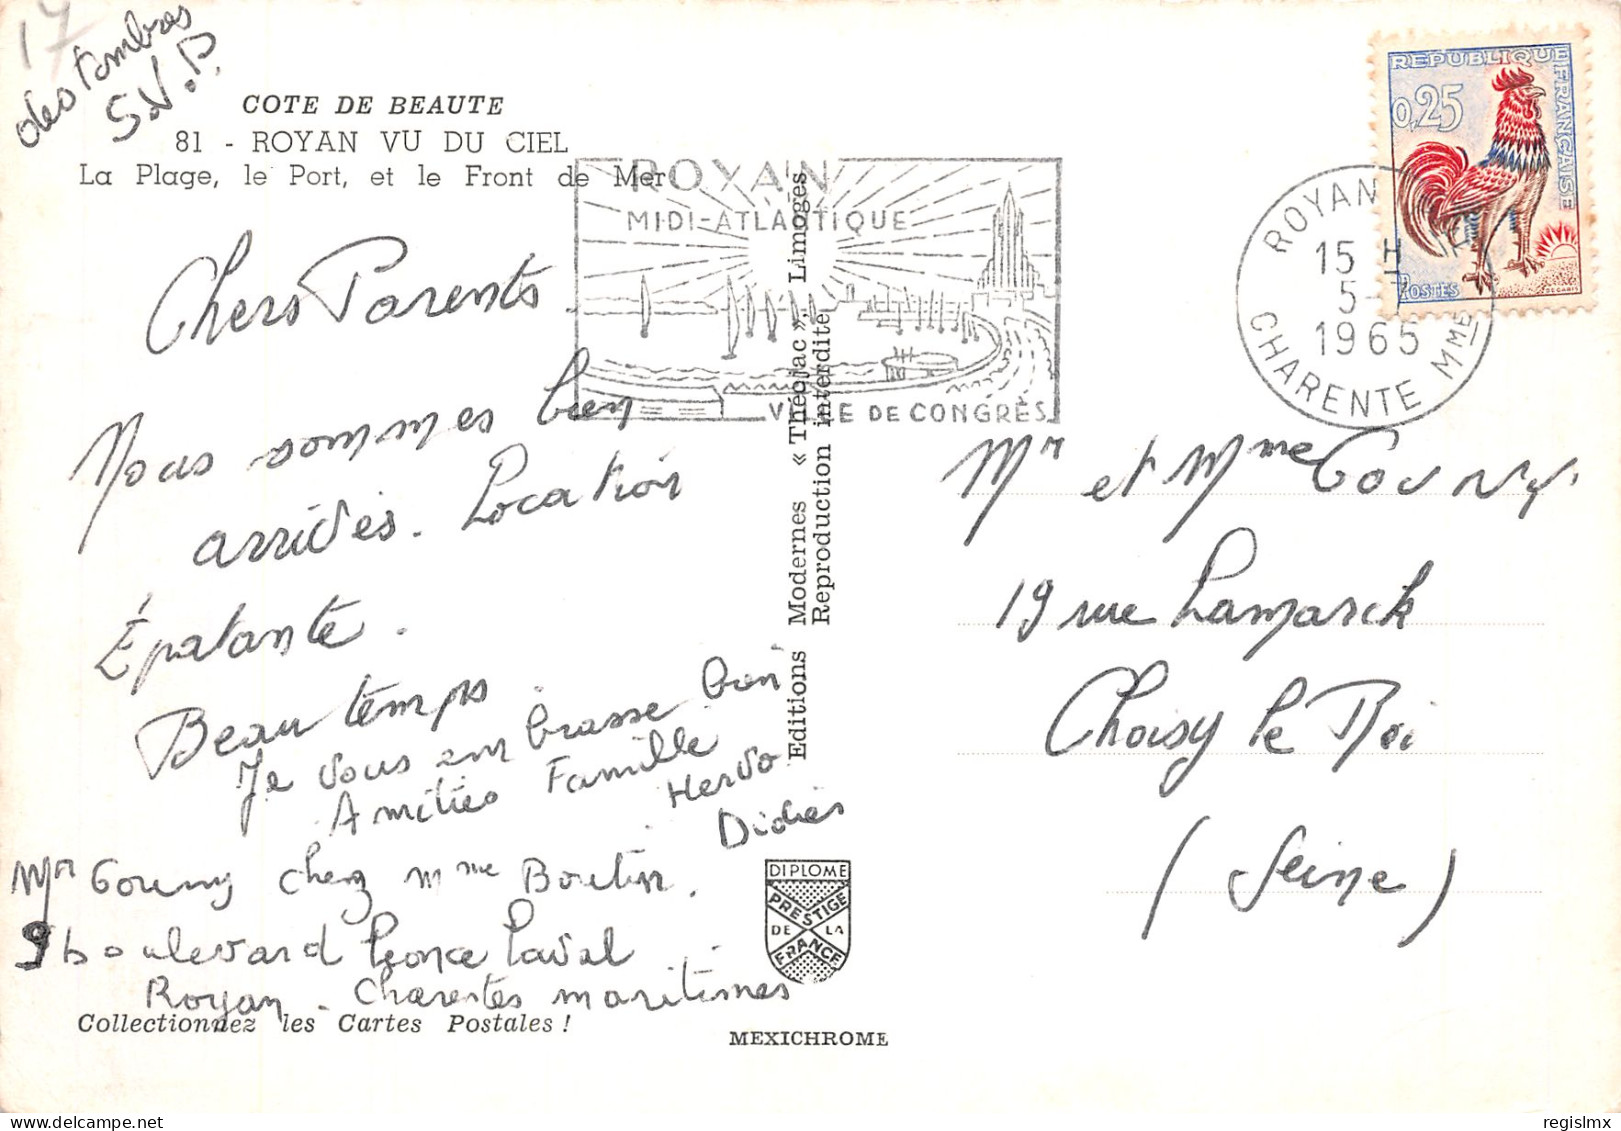 17
des timbres
S.V.P.
COTE DE BEAUTE
81 - ROYAN VU DU CIEL
La Plage, le Port, et le Front de Mer
Chers Parents.
Nous sommes bien
arrivés. Location
Épatante.
Beau temps.
Je vous embrasse bien
Amitiés Famille
Hervo
Didier
Mr Gourny chez mme Boutin.
9 boulevard Léonce Laval
Royan. Charentes maritimes
Collectionnez les Cartes Postales !
ROYAN
MIDI-ATLANTIQUE
VILLE DE CONGRÈS
Editions Modernes « Théojac », Limoges
Reproduction interdite
DIPLOME
PRESTIGE
DE LA
FRANCE
MEXICHROME
REPUBLIQUE FRANÇAISE
0,25
POSTES
DECARIS
ROYAN
15 H
5-7
1965
CHARENTE MME
Mr et Mme Gourny
19 rue Lamarck
Choisy le Roi
(Seine)
regislmx